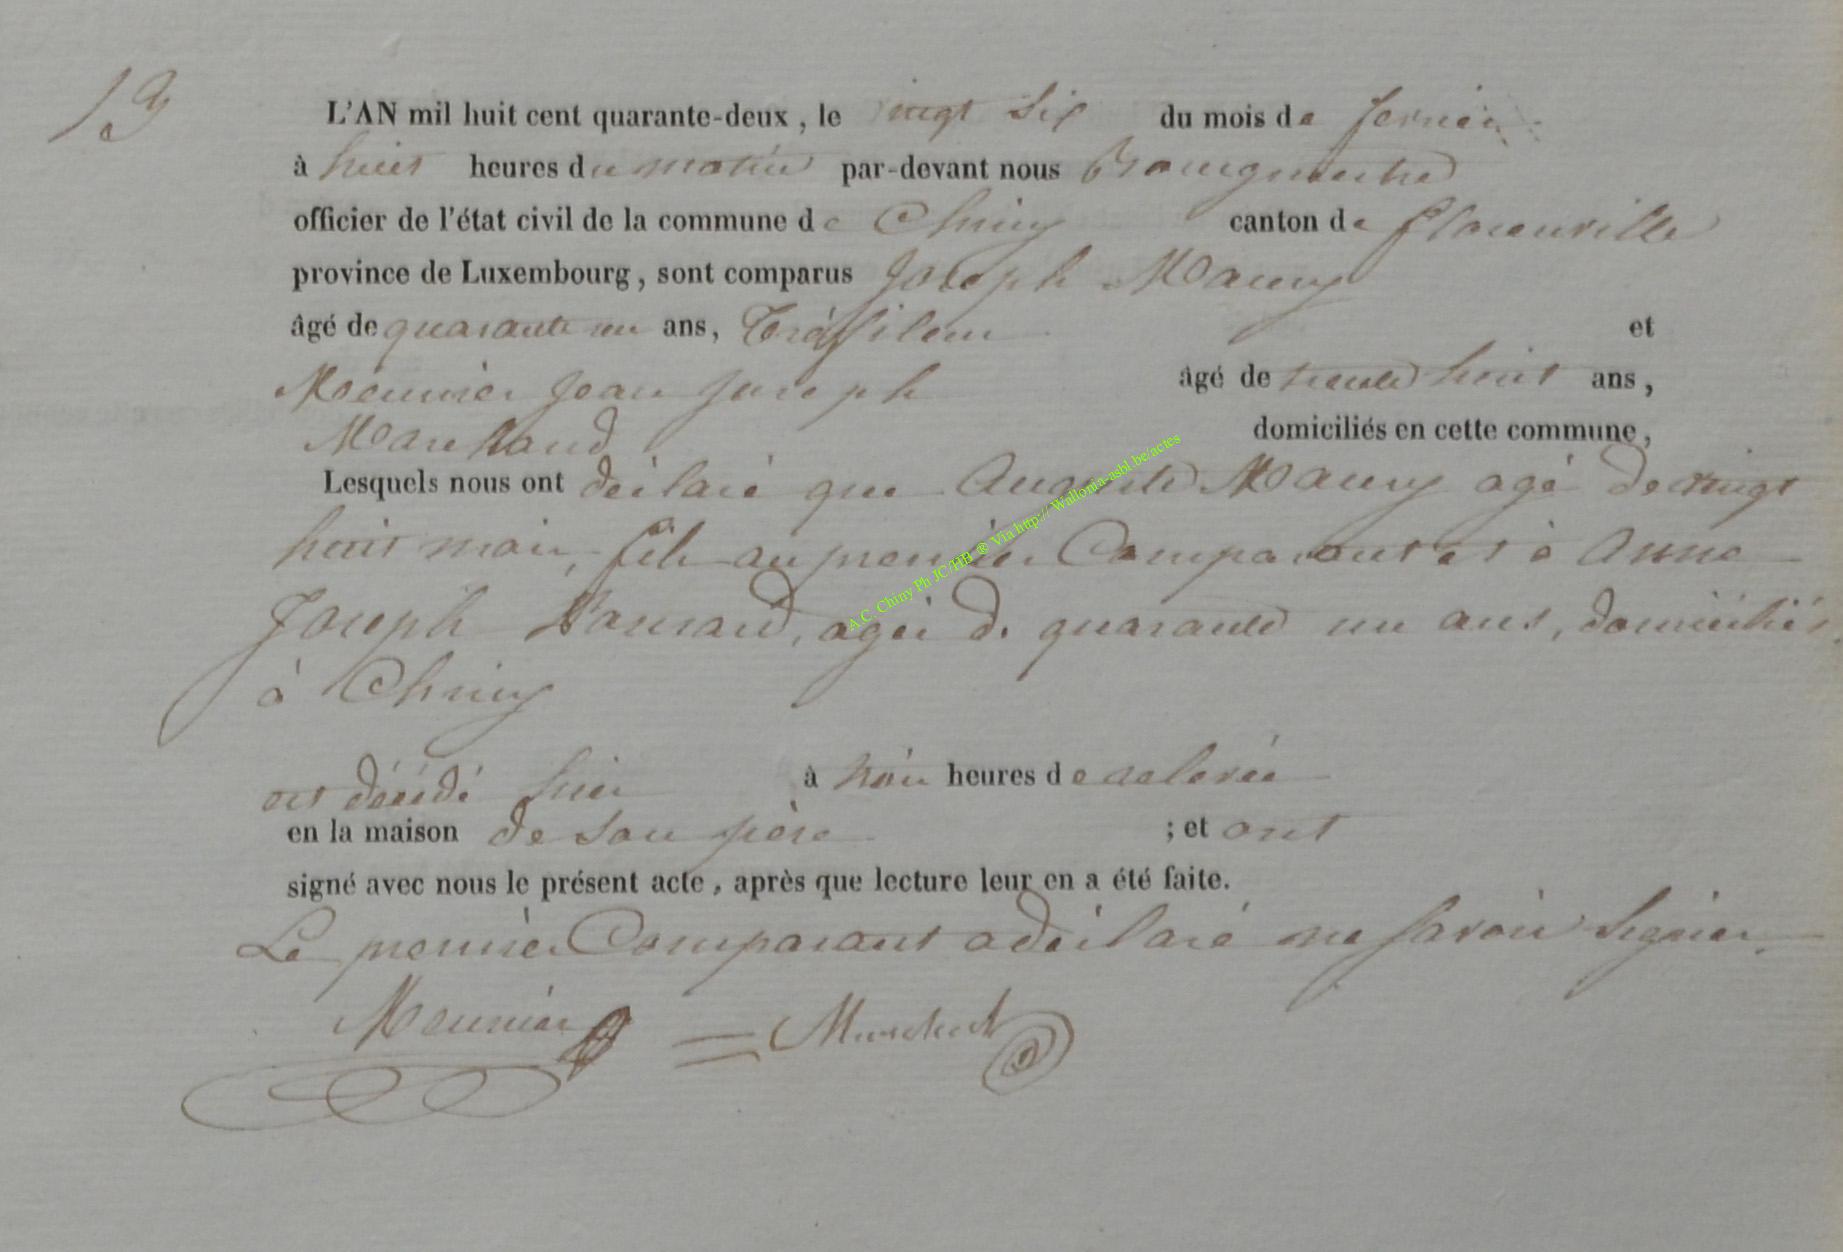 13
L'AN mil huit cent quarante-deux, le vingt six du mois de fevrier
à huit heures du matin par-devant nous Bourgmestre
officier de l'état civil de la commune de Chiny canton de florenville
province de Luxembourg, sont comparus Joseph Maury
âgé de quarante un ans, Tréfileur et
Meunier Jean Joseph âgé de trente huit ans,
Marchand domiciliés en cette commune,
Lesquels nous ont déclaré que Auguste Maury agé de vingt
huit mois, fils au premier Comparant et à Anne
Joseph, agée de quarante un ans, domiciliés
à Chiny
est décédé hier à heures de relevée
en la maison de son père ; et ont
signé avec nous le présent acte, après que lecture leur en a été faite.
Le premier Comparant a déclaré ne savoir signer.
Meunier
A.C. Chiny Ph JC/HB ® Via http://Wallonia-asbl.be/actes